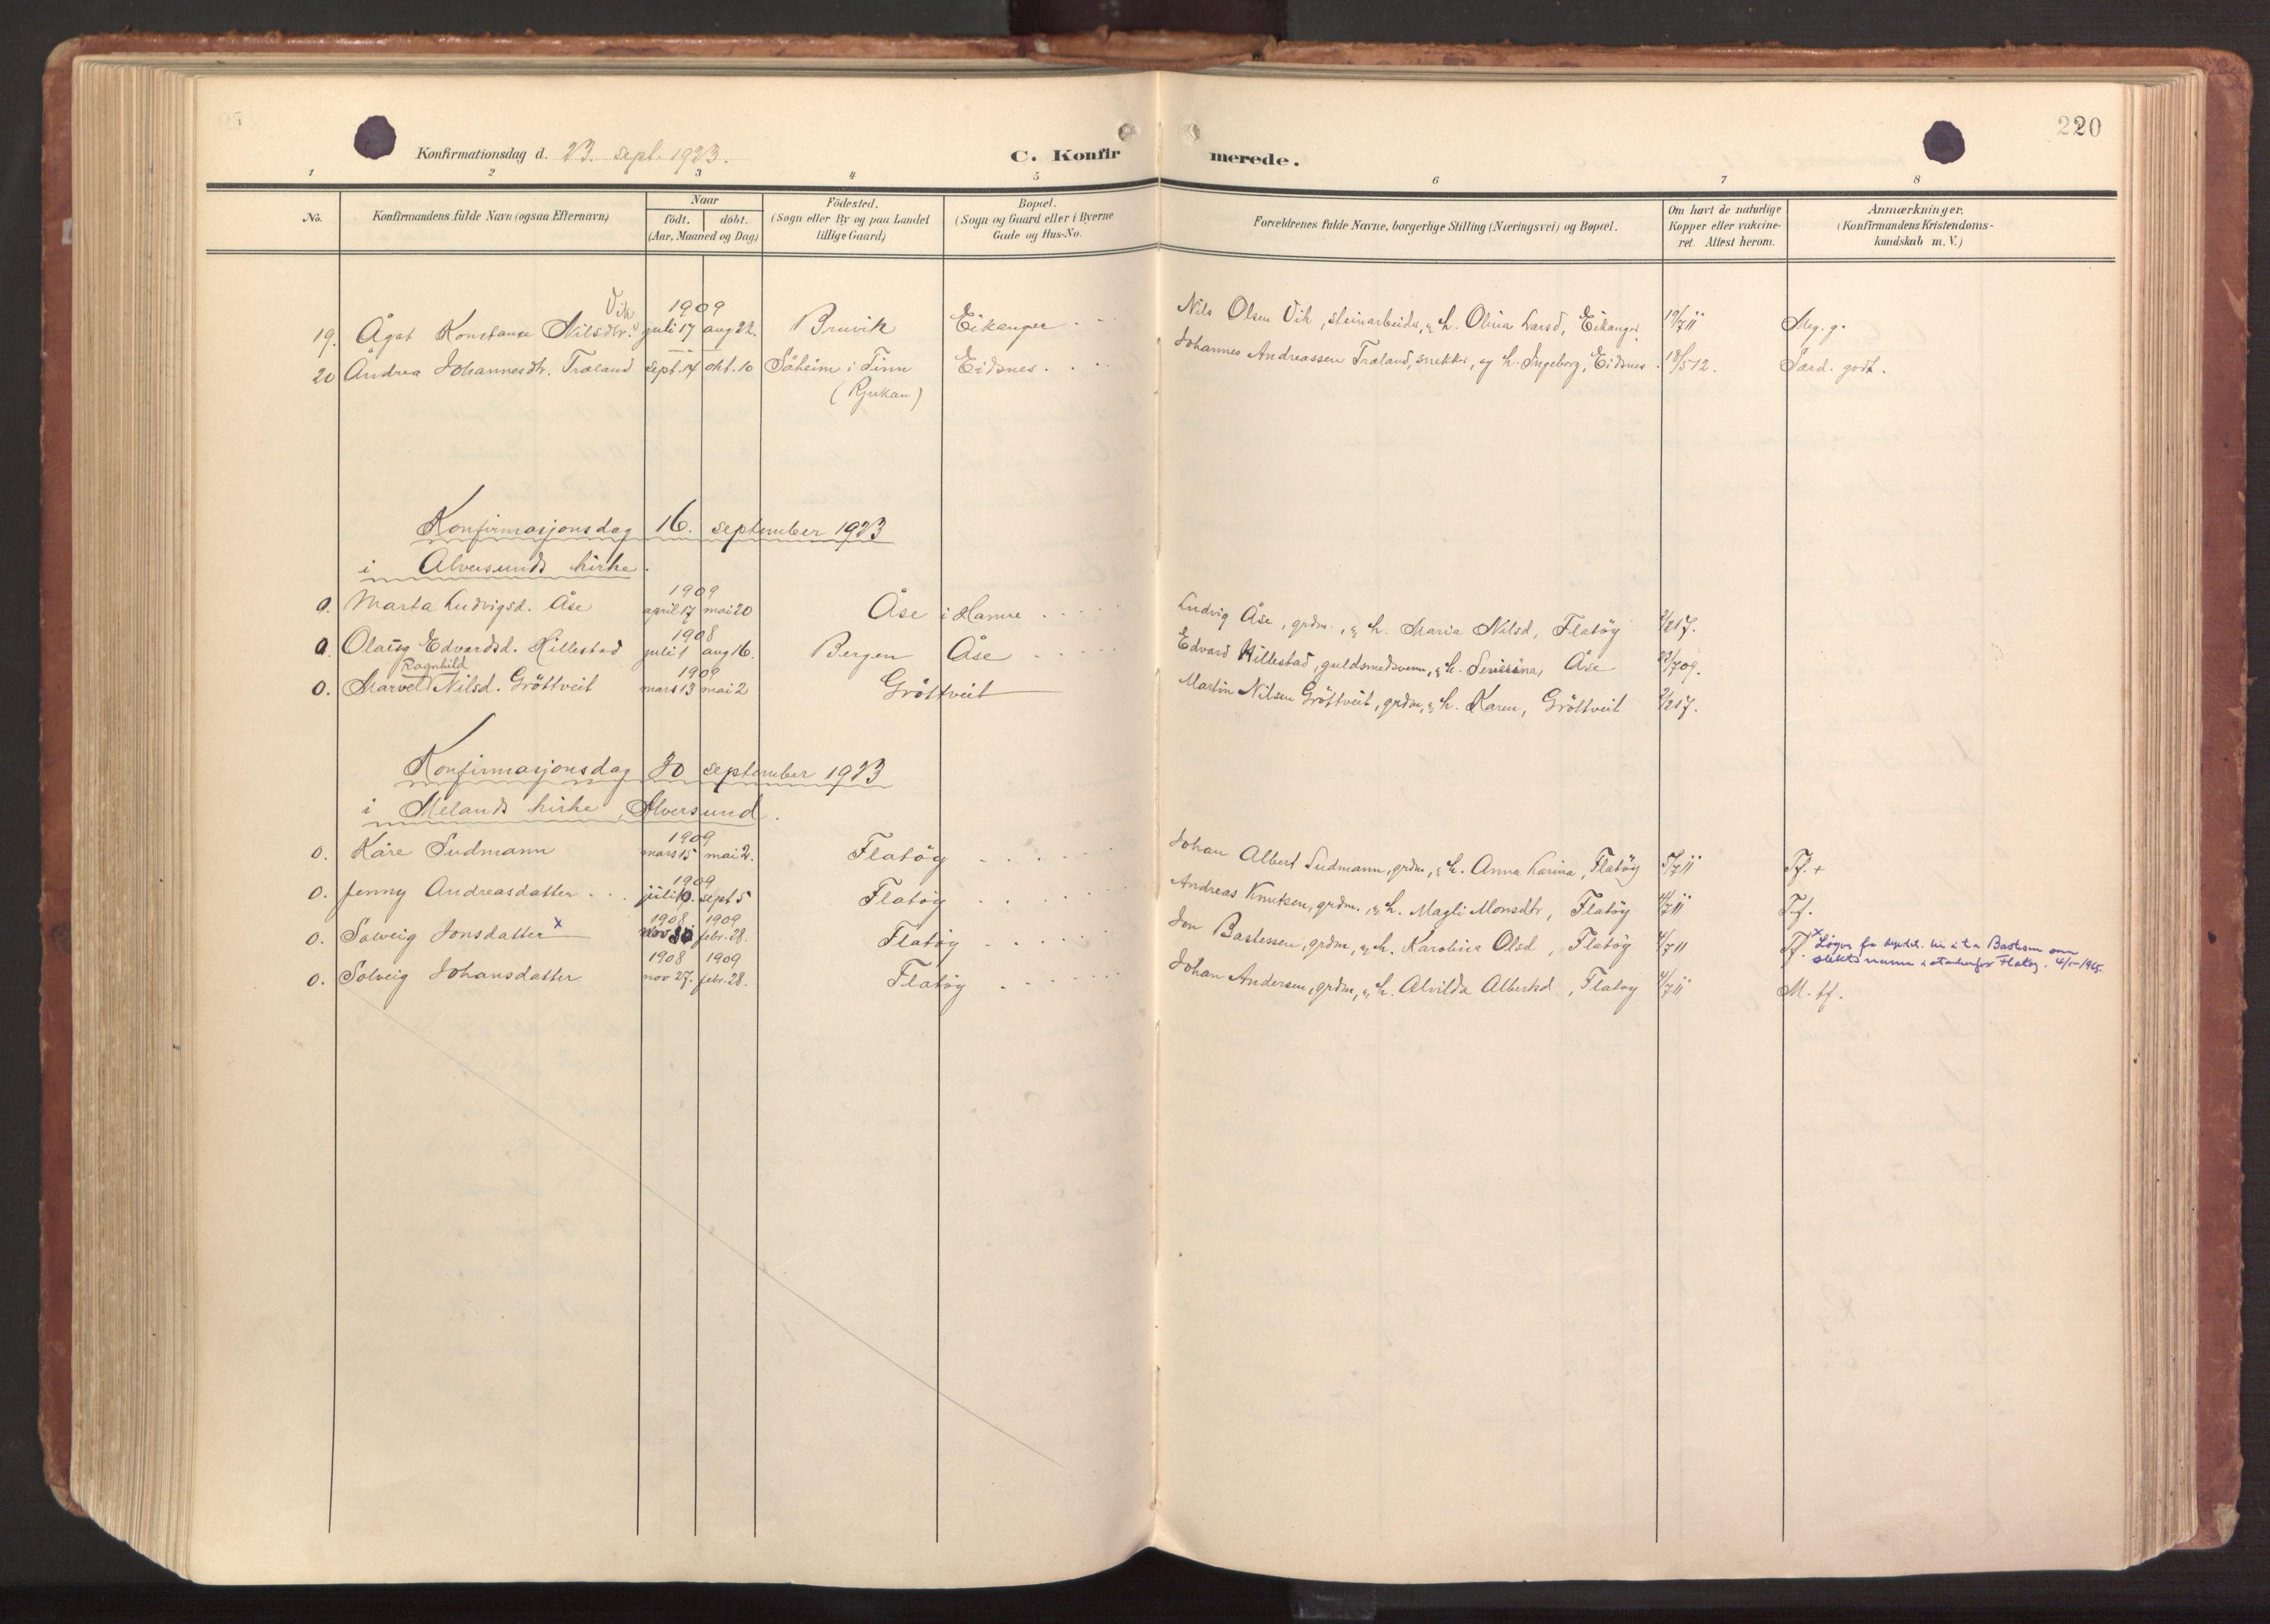 220
Konfirmationsdag d. 23. sept. 1923. C. Konfirmerede.
1 2 3 4 5 6 7 8
No. Konfirmandens fulde Navn (ogsaa Efternavn) Naar født. døbt. (Aar, Maaned og Dag) Fødested. (Sogn eller By og paa Landet tillige Gaard) Bopæl. (Sogn og Gaard eller i Byerne Gade og Hus-No. Forældrenes fulde Navne, borgerlige Stilling (Næringsvei) og Bopæl. Om havt de naturlige Kopper eller vakcineret. Attest herom. Anmærkninger. (Konfirmandens Kristendomskundskab m. V.)
Vik 1909
19. Ågot Konstanse Nilsdtr. juli 17 aug 22. Bruvik Eikanger Nils Olsen Vik, steinarbeider, og h. Olina Larsd, Eikanger. 19/7 11 Meg. g.
20 Andrea Johannesdtr. Træland sept. 14 okt. 10 Såheim i Tinn (Rjukan) Eidsnes. Johannes Andreassen Træland, snekker, og h. Ingeborg, Eidsnes. 18/5 12. Særd. godt.
Konfirmasjonsdag 16. september 1923
i Alversunds kirke.
1909
0. Marta Ludvigsd. Åse april 17 mai 20 Åse i Hamre Ludvig Åse, grdm., og h. Maria Nilsd, Flatöy 2/2 17.
1908
0. Olaug Edvardsd. Hillestad juli 1 aug 16. Bergen Åse Edvard Hillestad, guldsmedsvenn, og h. Åse 22/7 09.
Ragnhild 1909
0. Marvel Nilsd. Gröttveit mars 13 mai 2 Gröttveit Martin Nilsen Gröttveit, grdm, og h. Karen, Gröttveit 2/2 17.
Konfirmasjonsdag 30 september 1923
i Melands kirke, Alversund.
1909
0. Kåre Sudmann mars 15 mai 2. Flatöy Johan Albert Sudmann, grdm, og h. Anna Karina, Flatöy 5/7 11 Tf. +
1909
0. Jenny Andreasdatter juli 10. sept 5 Flatöy Andreas Knutsen, grdm., og h. Magli Monsdtr, Flatöy 4/7 11 T.f.
1908 1909
0. Solveig Jonsdatter x nov 30 febr. 28. Flatöy Jon Bastessen, grdm, og h. Karolina Olsd, Flatöy 4/7 11 Tf. x
Bastesen som slektsnamn istadenfor Flatøy. 4/5-1965.
1908 1909
0. Solveig Johansdatter nov 27. febr. 28. Flatöy Johan Andersen, grdm, og h. Alvilda Albertsd, Flatöy 4/7 11 M. tf.